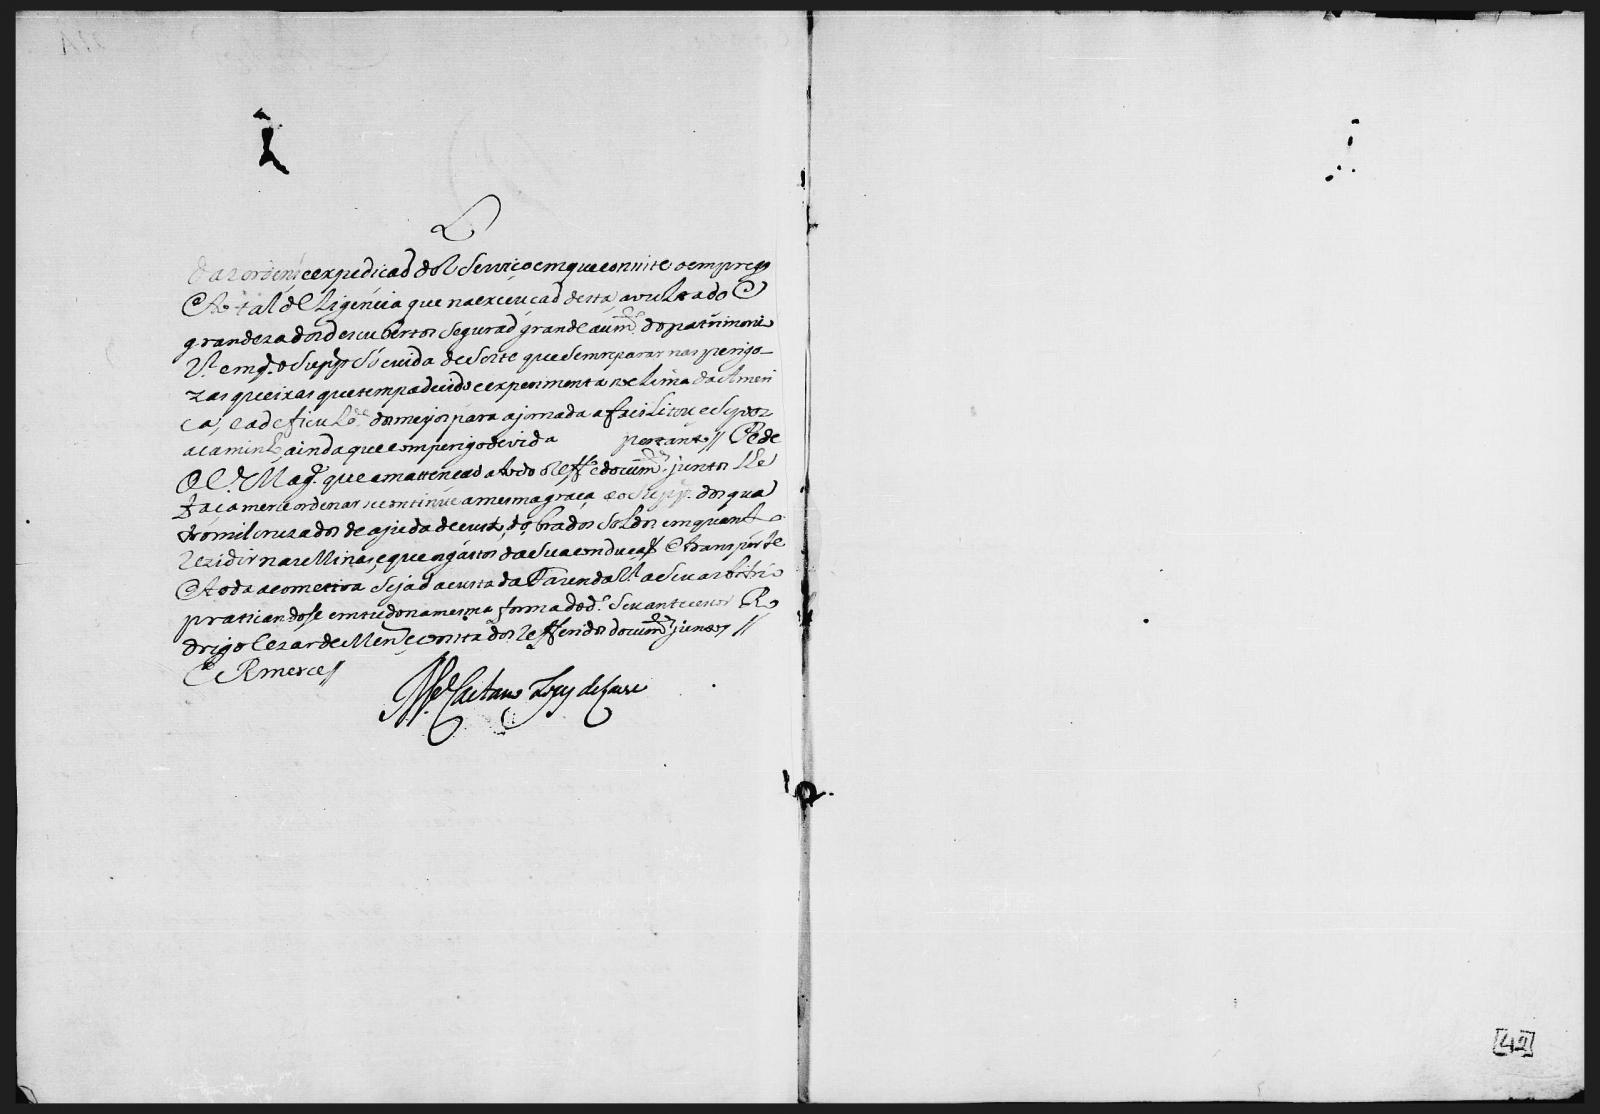 das ordens e expedicaõ do Rl Serviço em que conciste o emprego
de tal deligencia que na execucaõ desta, avultado e
grandeza dos descubertos seguraõ grande aumto do patrimonio
Rl em q. o Suppte Só cuida de Sorte que Sem reparar nas perigo
zas queixas que tem padecido e experimenta no clima da Ameri
ca, e a deficuldde dos meyos para a jornada a facilitou e Se poz
a caminho, ainda que com perigo de vida portanto // Pede
A V. Magde que em attencaõ a todo o refferido e documtos juntos lhe
faça merce ordenar se continue a mesma graça ao Suppte dos qua
tro mil cruzados de ajuda de custo, dobrados Soldos em quanto
rezidir nas Minas, e que os gastos da Sua conduçaõ e transporte
e toda a comettiva Sejaõ a custa da Fazenda Rl a Seu arbitrio
praticandose em tudo na mesma forma do do Seu antecessor Ro
drigo Cezar de Menezes, e consta dos refferidos documtos juntos //
E R merce //
Mel Caetano Lopes de Lavre
[42]